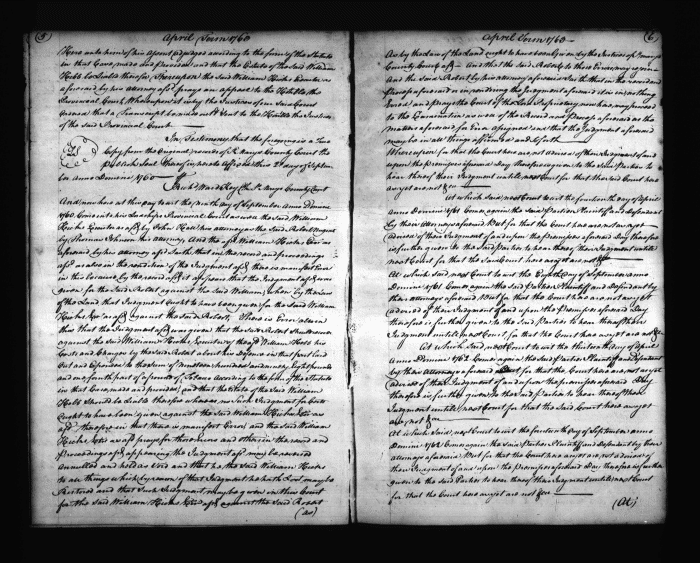 (5) April Term 1760
in that Case made and provided and that the Estate of the said William
Hebb be liable therefor, Whereupon the said William Hicks Executor as
aforesaid by his attorney afd prays an appeal to the Honble the
Provincial Court, Whereupon it is by the Justices of the said Court
Ordered that a Transcript hereof be sent to the Honble the Justices
of the said Provincial Court
In Testimony that the foregoing is a True
Copy from the Original record of St Marys County Court the
Publick Seal thereof is hereto Affixed this 2d day of Septem
ber Anno Domini 1760
County Court
And now here at this Day to wit the ninth day of September Anno Domini
1760 Comes into his Lordships Provincial Court as well the said William
Hicks Executor as afd by John Hall his attorney as the said Robert
by Thomas Johnson his Attorney, And the afd William Hicks Exr as
aforesaid by his attorney afd saith that in the record and proceedings
afd as also in the rendition of the Judgment afd there is manifest Error
in this because by the record afd it appears that the Judgment afd were
given for the said Robert against the said William, when by the Law
of the Land that Judgment ought to have been given for the said William
Hicks Exr as afd against the said Robert, There is Error also in
that that the Judgment afd was given that the said Robert shou'd recover
against the said William Hicks Executor of the afd William Hebb his
Costs and Charges by the said Robert about his Defence in that part laid
Out and Expended to the sum of nineteen hundred and ninety Eight pounds
and one fourth part of a pound of Tobacco According to the form of the Statute
in that Case made and provided, and that the Estate of the said William
Hebb Should be Liable therefor whereas no such Judgment for Costs
Ought to have been given against the said William Hicks Exr as
afd therefore in that there is manifest Error, and the said William
Hicks Exr as afd prays for those Errors and others in the record and
Proceedings afd appearing the Judgment afd may be reversed
Annulled and held as Void and that he the said William Hicks
to all things which by reason of that Judgment he hath lost may be
Restored and that such Judgment may be given in this Court
for the said William Hicks Exr as afd against the said Robert
(as)
April Term 1760 (6)
As by the Law of the Land ought to have been Given by the Justices of St Marys
County Court afd And that the said Robert to these Errors may
And the said Robert by his attorney aforesaid Saith that in the record and
Process aforesaid or in rendering the Judgment aforesaid it is in nothing
Erred and prays the Court of the Lord Proprietary now here may proceed
to the Examination as well of the Record and Process aforesaid as the
Matters aforesaid for Error Assigned and that the Judgment aforesaid
may be in all things affirmed and so forth
Whereupon for that the Court here are not advised of their Judgment of and
upon the premises aforesaid Day therefore is given to the said Parties to
hear thereof their Judgment until next Court for that the said Court here
are yet not &c
At which said next Court to wit the fourteenth day of April
Anno Domini 1761 Comes again the said Parties Plaintiff and defendant
by their Attorneys aforesaid But for that the Court here are not as yet
advised of their Judgment of and upon the premises aforesaid Day therefore
is further given to the said Parties to hear thereof their Judgment until
next Court for that the said Court here are yet not &c
At which said next Court to wit the Eighth day of September Anno
Domini 1761 Comes again the said Parties Plaintiff and Defendant by
their Attorneys aforesaid But for that the Court here are not as yet
advised of their Judgment of and upon the Premises aforesaid Day
therefore is further given to the said Parties to hear thereof their
Judgment until next Court for that the Court here are yet not &c
At which said next Court to wit the thirteenth day of April
Anno Domini 1762 Comes again the said Parties Plaintiff and Defendant
by their Attorneys aforesaid But for that the Court here are not as yet
advised of their Judgment of and upon the premises aforesaid Day
therefore is further given to the said Parties to hear thereof their
Judgment until next Court for that the said Court here are yet
not &c
At which said next Court to wit the fourteenth day of September Anno
Domini 1762 Comes again the said Parties Plaintiff and Defendant by their
attorneys aforesaid But for that the Court here are yet not advised of
their Judgment of and upon the Premises aforesaid Day therefore is further
given to the said Parties to hear thereof their Judgment until next Court
for that the Court here are yet not &c
(At)